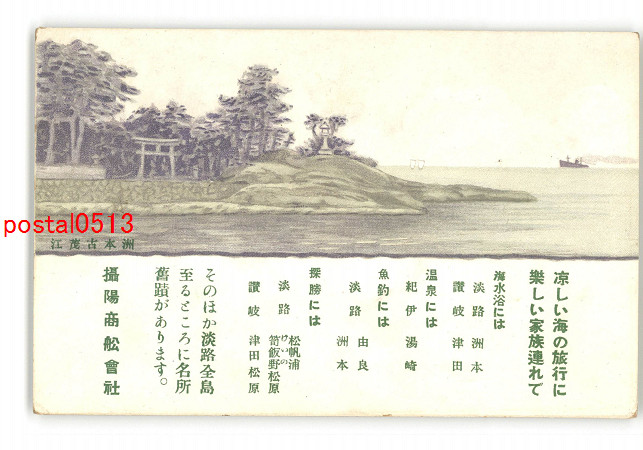 postal0513
洲本古茂江
凉しい海の旅行に
樂しい家族連れで
海水浴には
淡路 洲本
讚岐 津田
温泉には
紀伊 湯崎
魚釣には
淡路 由良
洲本
探勝には
淡路 松帆浦
笥飯野松原
けいの
讚岐 津田松原
そのほか淡路全島
至るところに名所
舊蹟があります。
攝陽商舩會社